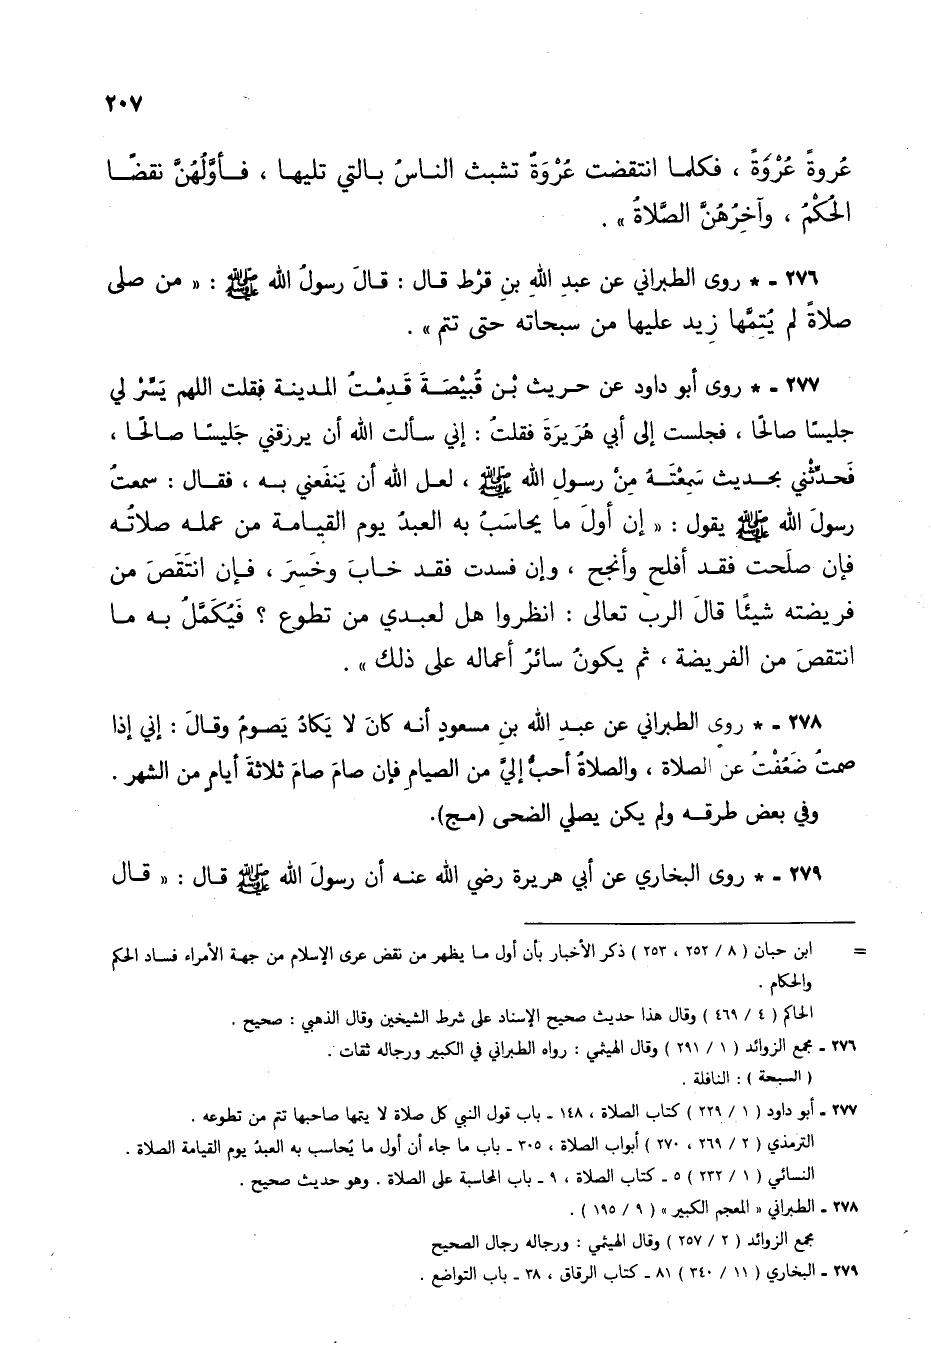 ٢٠٧
عُروةً عُرْوَةً ، فكلما انتقضت عُرْوَةٌ تشبث الناسُ بالتي تليها ، فأوَّلُهُنَّ نقضًا
الحُكْمُ ، وآخِرُهُنَّ الصَّلاةُ » .
٢٧٦ - * روى الطبراني عن عبدِ اللهِ بنِ قرْط قال : قالَ رسولُ الله ﷺ : « من صلى
صلاةً لم يُتِمَّها زِيد عليها من سبحاته حتى تتم » .
٢٧٧ - * روى أبو داود عن حريث بْن قُبيْصَةَ قَدِمْتُ المدينة فقلت اللهم يَسِّرْ لي
جليسًا صالحًا ، فجلست إلى أبي هُرَيرَةَ فقلتُ : إني سألت الله أن يرزقني جَليسًا صالحًا ،
فَحدِّثْني بحديث سَمِعْتَهُ مِنْ رسول الله ﷺ ، لعل الله أن يَنفَعني به ، فقال : سمعتُ
رسولَ الله ﷺ يقول : « إن أولَ ما يحاسَبُ به العبدُ يوم القيامة من عمله صلاتُه
فإن صلَحت فقد أفلح وأنجح ، وإن فسدت فقد خابَ وخَسِرَ ، فإن انتَقَصَ من
فريضته شيئًا قالَ الربُ تعالى : انظروا هل لعبدي من تطوع ؟ فَيُكَمَّلُ به ما
انتقصَ من الفريضة ، ثم يكونُ سائرُ أعماله على ذلك » .
٢٧٨ - * روى الطبراني عن عبدِ الله بنِ مسعودٍ أنه كانَ لا يَكادُ يَصومُ وقالَ : إني إذا
صمتُ ضَعُفْتُ عن الصلاة ، والصلاةُ أحبُّ إليَّ من الصيامِ فإن صامَ صامَ ثلاثةَ أيامٍ من الشهر .
وفي بعض طرقه ولم يكن يصلي الضحى (مج).
٢٧٩ - * روى البخاري عن أبي هريرة رضي الله عنه أن رسولَ الله ﷺ قال : « قال
= ابن حبان ( ٨ / ٢٥٢ ، ٢٥٣ ) ذكر الأخبار بأن أول ما يظهر من نقض عرى الإسلام من جهة الأمراء فساد الحكم
والحكام .
الحاكم ( ٤ / ٤٦٩ ) وقال هذا حديث صحيح الإسناد على شرط الشيخين وقال الذهبي : صحيح .
٢٧٦ - مجمع الزوائد ( ١ / ٢٩١ ) وقال الهيثمي : رواه الطبراني في الكبير ورجاله ثقات .
( السبحة ) : النافلة .
٢٧٧ - أبو داود ( ١ / ٢٢٩ ) كتاب الصلاة ، ١٤٨ - باب قول النبي كل صلاة لا يتمها صاحبها تتم من تطوعه .
الترمذي ( ٢ / ٢٦٩ ، ٢٧٠ ) أبواب الصلاة ، ٣٠٥ - باب ما جاء أن أول ما يُحاسب به العبدُ يوم القيامة الصلاة .
النسائي ( ١ / ٢٣٢ ) ٥ - كتاب الصلاة ، ٩ - باب المحاسبة على الصلاة . وهو حديث صحيح .
٢٧٨ - الطبراني « المعجم الكبير » ( ٩ / ١٩٥ ) .
مجمع الزوائد ( ٢ / ٢٥٧ ) وقال الهيثمي : ورجاله رجال الصحيح
٢٧٩ - البخاري ( ١١ / ٣٤٠ ) ٨١ - كتاب الرقاق ، ٣٨ - باب التواضع .